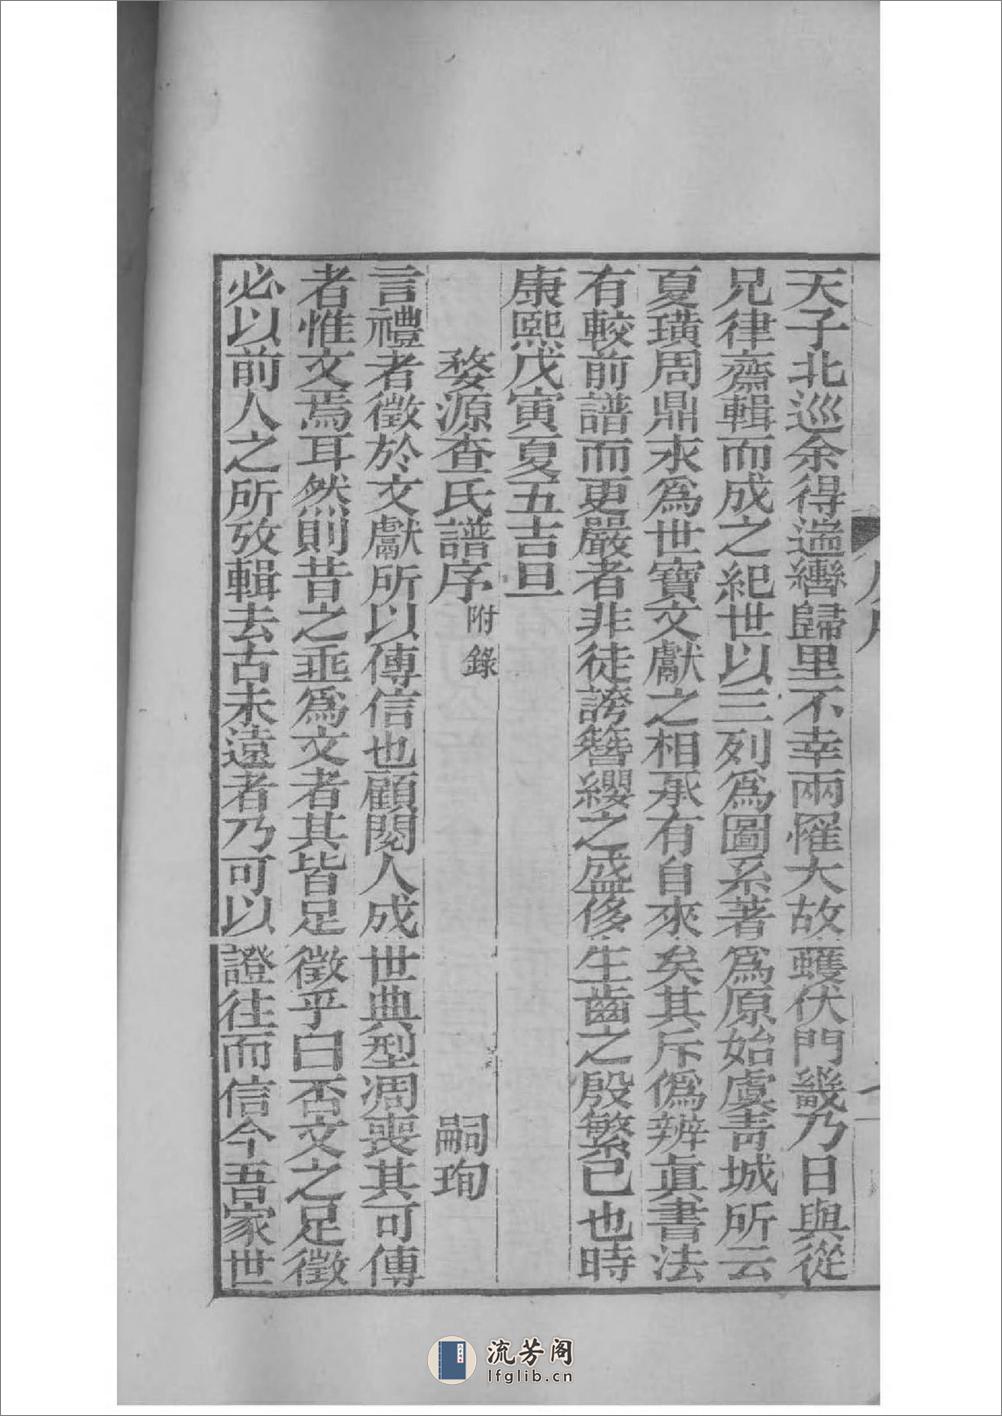 天子北巡余得遄轡歸里不幸兩罹大故蠖伏門畿乃日與從
兄律齋輯而成之紀世以三列爲圖系著爲原始虞靑城所云
夏璜周鼎永爲世寶文獻之相承有自來矣其斥僞辨眞書法
有較前譜而更嚴者非徒誇簪纓之盛侈生齒之殷繁已也時
康熙戊寅夏五吉旦
婺源查氏譜序 附錄 嗣珣
言禮者徵於文獻所以傳信也顧閱人成世典型凋喪其可傳
者惟文焉耳然則昔之垂爲文者其皆足徵乎曰否文之足徵
必以前人之所攷輯去古未遠者乃可以證往而信今吾家世
流芳阁
lfglib.cn